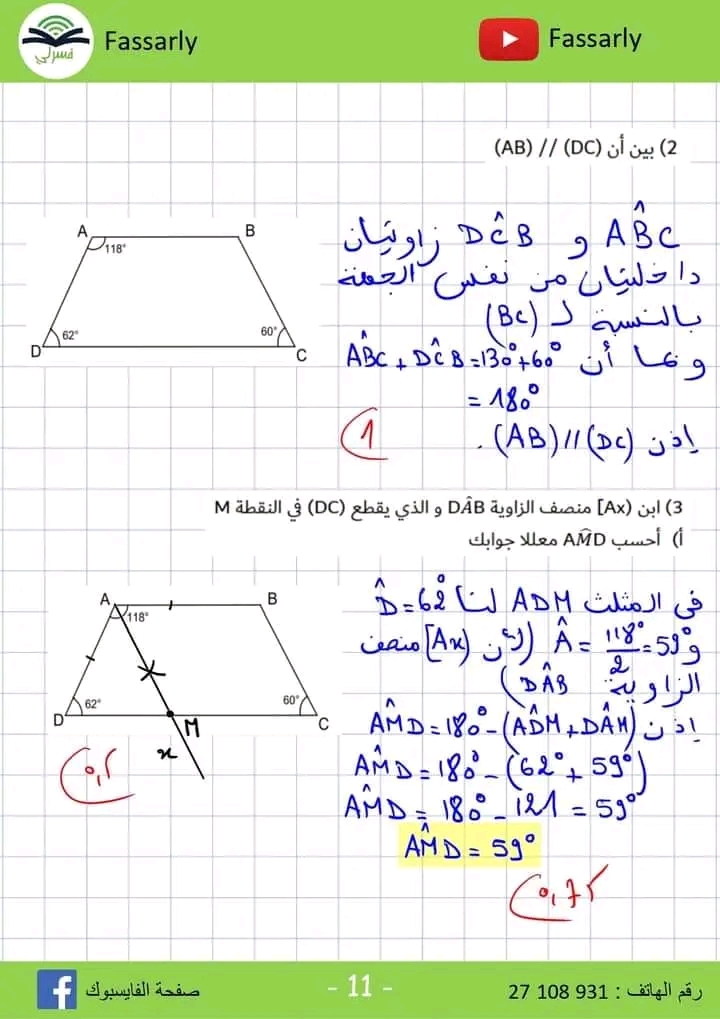 Fassarly
فسرلي
Fassarly
2) بين أن (AB) // (DC)
A
B
118°
62°
60°
D
C
AB̂C و DĈB زاويتان
داخليتان من نفس الجهة
بالنسبة لـ (BC)
وبما أن AB̂C + DĈB = 130° + 60°
= 180°
إذن (AB) // (DC).
1
3) ابن [Ax) منصف الزاوية DÂB و الذي يقطع (DC) في النقطة M
أ) أحسب AM̂D معللا جوابك
A
B
118°
62°
60°
D
M
C
x
في المثلث ADM لنا D̂ = 62°
و Â = 118°/2 = 59° (لأن [Ax) منصف
الزاوية DÂB)
إذن AM̂D = 180° - (AD̂M + DÂM)
AM̂D = 180° - (62° + 59°)
AM̂D = 180° - 121 = 59°
AM̂D = 59°
0,5
0,75
صفحة الفايسبوك
- 11 -
رقم الهاتف : 27 108 931